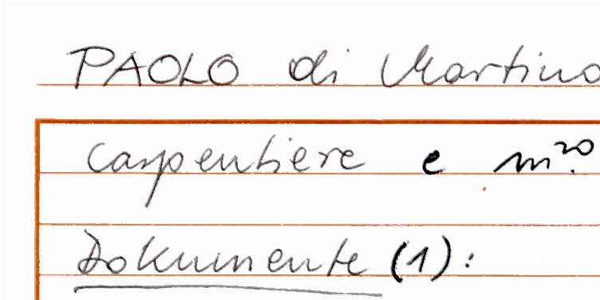 PAOLO di Martino
carpentiere e m.ro
Dokumente (1):